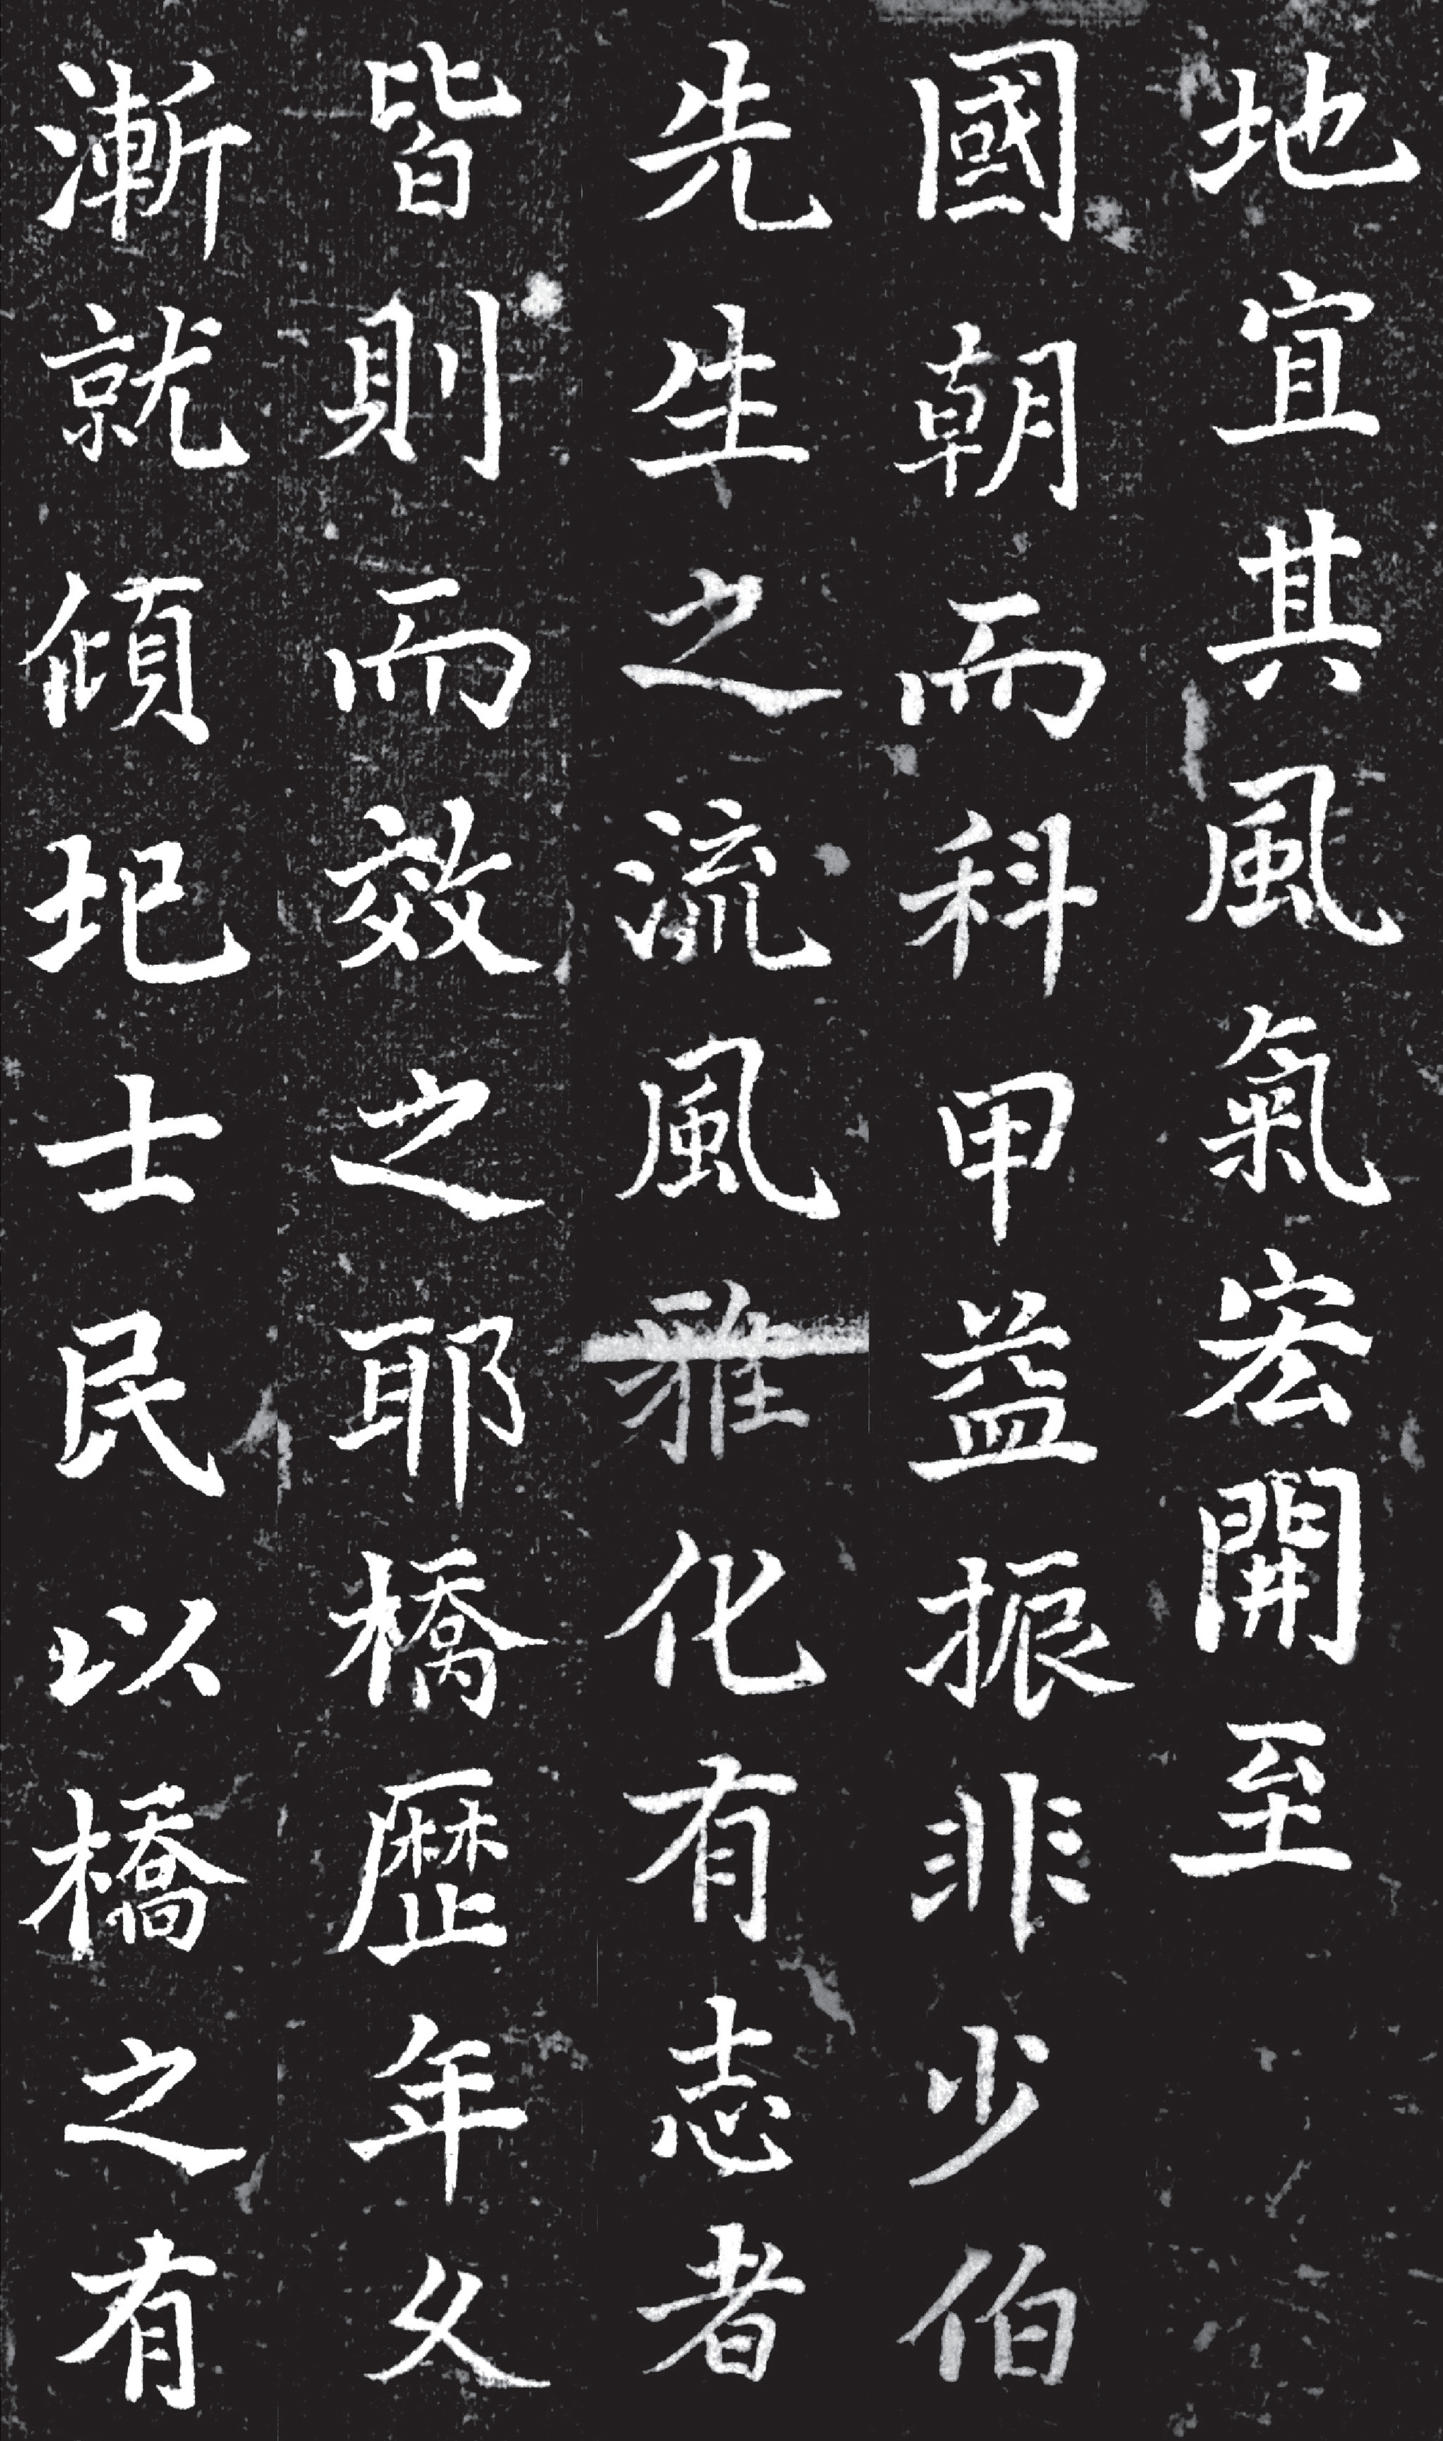 地宜其風氣宏開至
國朝而科甲益振非少伯
先生之流風雅化有志者
皆則而效之耶橋歷年久
漸就傾圯士民以橋之有